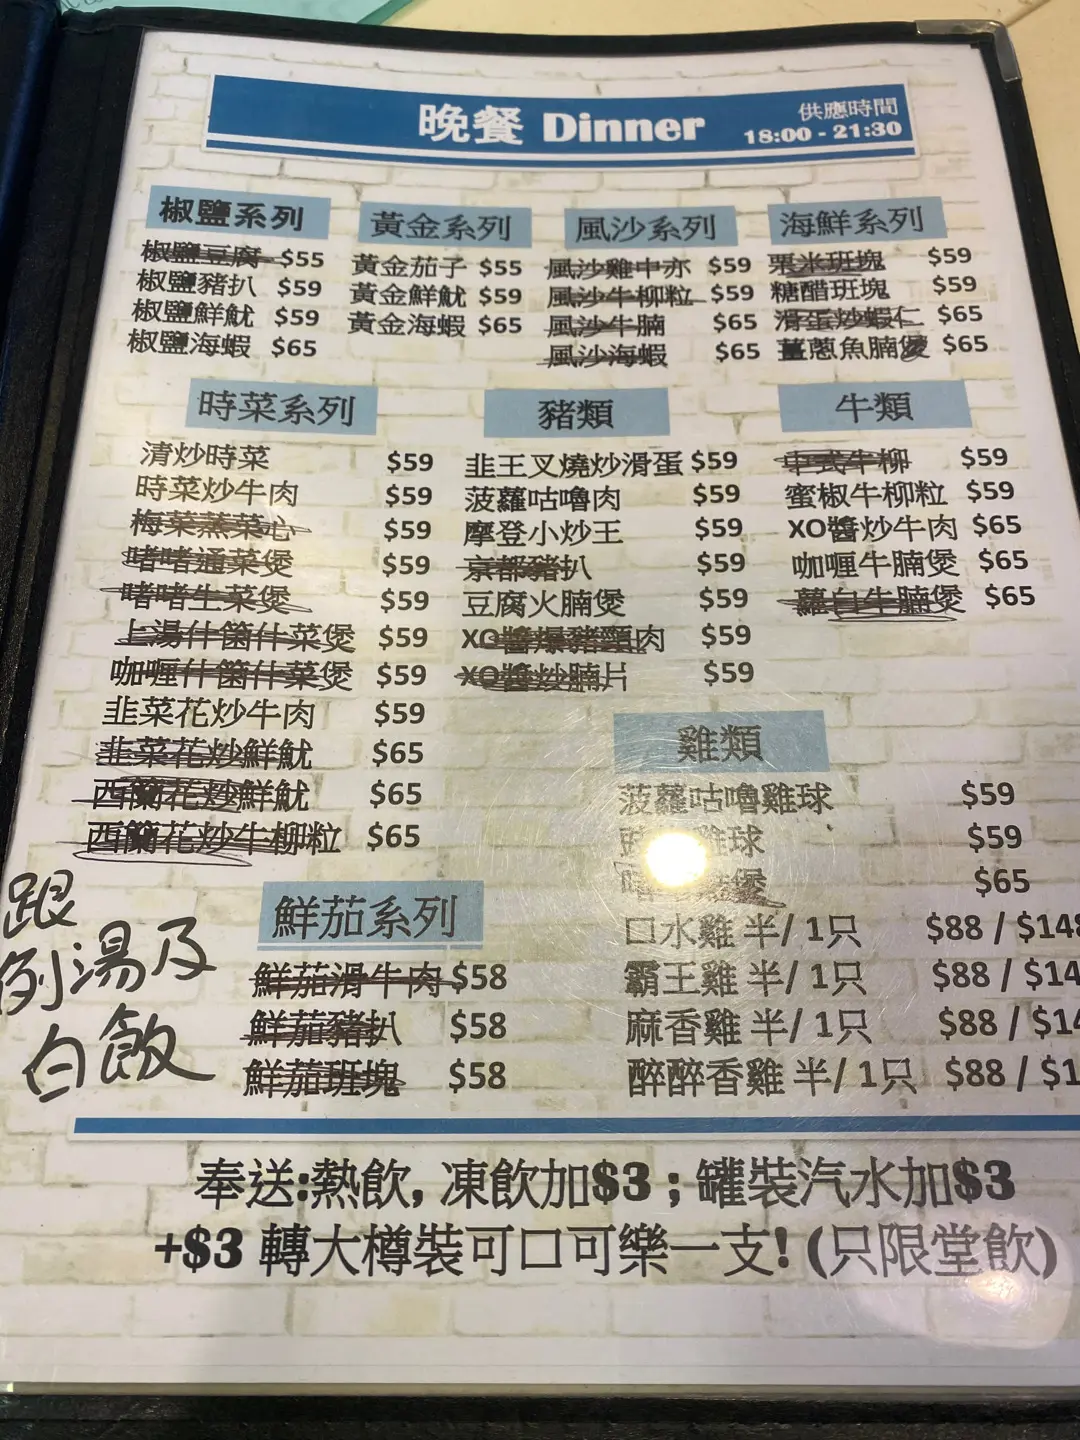 晚餐 Dinner
供應時間
18:00 - 21:30
椒鹽系列
椒鹽豆腐 $55
椒鹽豬扒 $59
椒鹽鮮魷 $59
椒鹽海蝦 $65
黃金系列
黃金茄子 $55
黃金鮮魷 $59
黃金海蝦 $65
風沙系列
風沙雞中亦 $59
風沙牛柳粒 $59
風沙牛腩 $65
風沙海蝦 $65
海鮮系列
栗米班塊 $59
糖醋班塊 $59
滑蛋炒蝦仁 $65
薑蔥魚腩煲 $65
時菜系列
清炒時菜 $59
時菜炒牛肉 $59
梅菜蒸菜心 $59
啫啫通菜煲 $59
啫啫生菜煲 $59
上湯什箘什菜煲 $59
咖喱什箘什菜煲 $59
韭菜花炒牛肉 $59
韭菜花炒鮮魷 $65
西蘭花炒鮮魷 $65
西蘭花炒牛柳粒 $65
豬類
韭王叉燒炒滑蛋 $59
菠蘿咕嚕肉 $59
摩登小炒王 $59
京都豬扒 $59
豆腐火腩煲 $59
XO醬爆豬頸肉 $59
XO醬炒腩片 $59
牛類
中式牛柳 $59
蜜椒牛柳粒 $59
XO醬炒牛肉 $65
咖喱牛腩煲 $65
蘿白牛腩煲 $65
雞類
菠蘿咕嚕雞球 $59
雞球 $59
煲 $65
口水雞 半/ 1只 $88 / $148
霸王雞 半/ 1只 $88 / $14
麻香雞 半/ 1只 $88 / $14
醉醉香雞 半/ 1只 $88 / $1
跟
例湯及
白飯
鮮茄系列
鮮茄滑牛肉 $58
鮮茄豬扒 $58
鮮茄班塊 $58
奉送:熱飲, 凍飲加$3 ; 罐裝汽水加$3
+$3 轉大樽裝可口可樂一支! (只限堂飲)